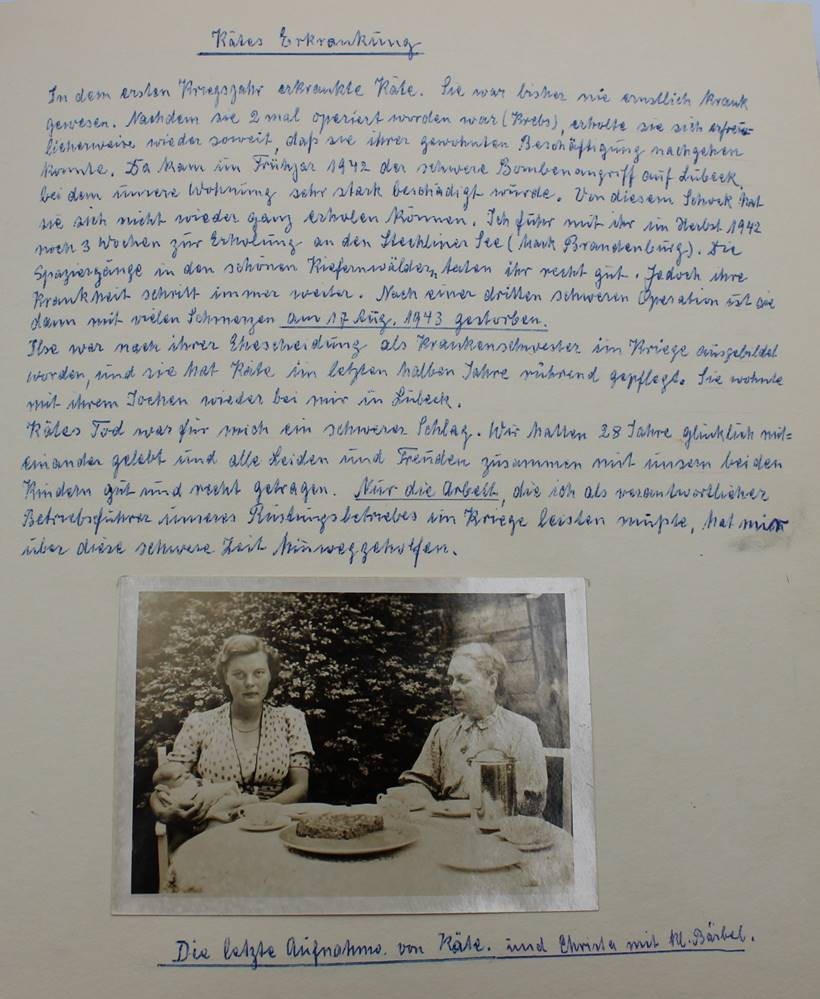 Kätes Erkrankung
In dem ersten Kriegsjahr erkrankte Käte. Sie war bisher nie ernstlich krank
gewesen. Nachdem sie 2 mal operiert worden war (Krebs), erholte sie sich erfreu=
licherweise wieder soweit, daß sie ihrer gewohnten Beschäftigung nachgehen
konnte. Da kam im Frühjar 1942 der schwere Bombenangriff auf Lübeck,
bei dem unsere Wohnung sehr stark beschädigt wurde. Von diesem Schock hat
sie sich nicht wieder ganz erholen können. Ich fuhr mit ihr im Herbst 1942
noch 3 Wochen zur Erholung an den Stechliner See (Mark Brandenburg). Die
Spaziergänge in den schönen Kiefernwäldern taten ihr recht gut. Jedoch ihre
Krankheit schritt immer weiter. Nach einer dritten schweren Operation ist sie
dann mit vielen Schmerzen am 17 Aug. 1943 gestorben.
Ilse war nach ihrer Ehescheidung als Krankenschwester im Kriege ausgebildet
worden, und sie hat Käte im letzten halben Jahre rührend gepflegt. Sie wohnte
mit ihrem Jochen wieder bei mir in Lübeck.
Kätes Tod war für mich ein schwerer Schlag. Wir hatten 28 Jahre glücklich mit=
einander gelebt und alle Leiden und Freuden zusammen mit unsern beiden
Kindern gut und recht getragen. Nur die Arbeit, die ich als verantwortlicher
Betriebsführer unseres Rüstungsbetriebes im Kriege leisten mußte, hat mir
über diese schwere Zeit hinweggeholfen.
Die letzte Aufnahme von Käte. und Christa mit kl. Bärbel.